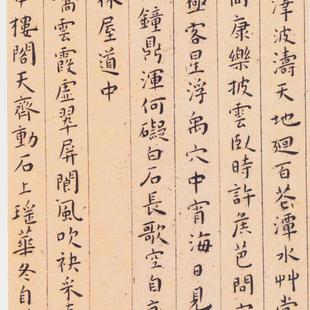 津波濤天地廻百花潭水艸堂
問康樂披雲臥時許侯芭問字
極客星浮禹穴中宵海日見
鐘鼎渾何礙白石長歌空自
屋道中
雲霞虛翠屏閬風吹袂采
樓閣天齊動石上瑤華冬自